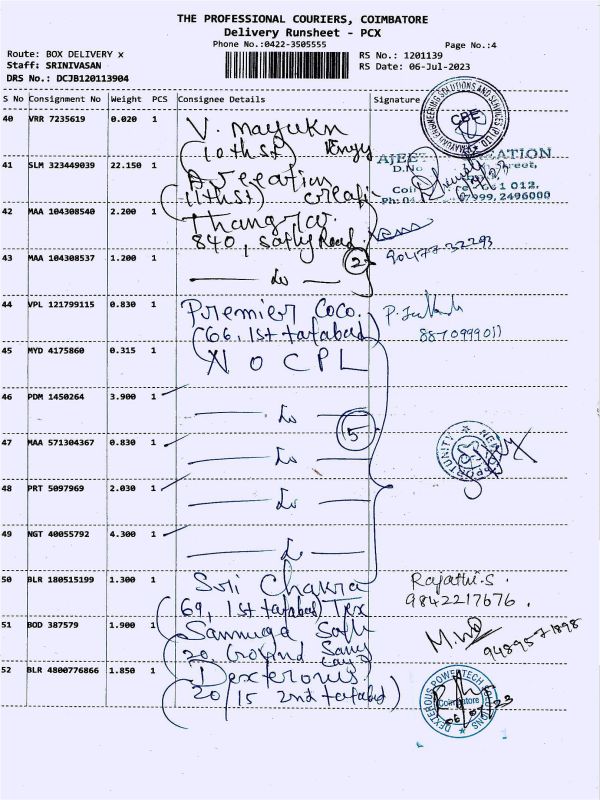 THE PROFESSIONAL COURIERS, COIMBATORE
Delivery Runsheet - PCX
Phone No.:0422-3505555
Page No.:4
Route: BOX DELIVERY x
Staff: SRINIVASAN
DRS No.: DCJB120113904
RS No.: 1201139
RS Date: 06-Jul-2023
S No Consignment No Weight PCS Consignee Details Signature
40 VRR 7235619 0.020 1
(10th St)
CBE
41 SLM 323449039 22.150 1
(11th St)
D.No
Street,
641 012.
2496000
42 MAA 104308540 2.200 1
840,
43 MAA 104308537 1.200 1
2
90477 32293
44 VPL 121799115 0.830 1 Premier Coco.
(66, 1st tatabad)
8870999011
45 MYD 4175860 0.315 1 N O C P L
46 PDM 1450264 3.900 1
5
47 MAA 571304367 0.830 1
OPPORTUNITY
48 PRT 5097969 2.030 1
49 NGT 40055792 4.300 1
50 BLR 180515199 1.300 1 Sri Chakra
(69, 1st tatabad) Tex
Rajathi.S.
9842217676.
51 BOD 387579 1.900 1
9489571898
52 BLR 4800776866 1.850 1 Dexterous.
20/15 2nd tatabad)
DEXTEROUS POWERTECH SOLUTIONS
Coimbatore
06/07/23